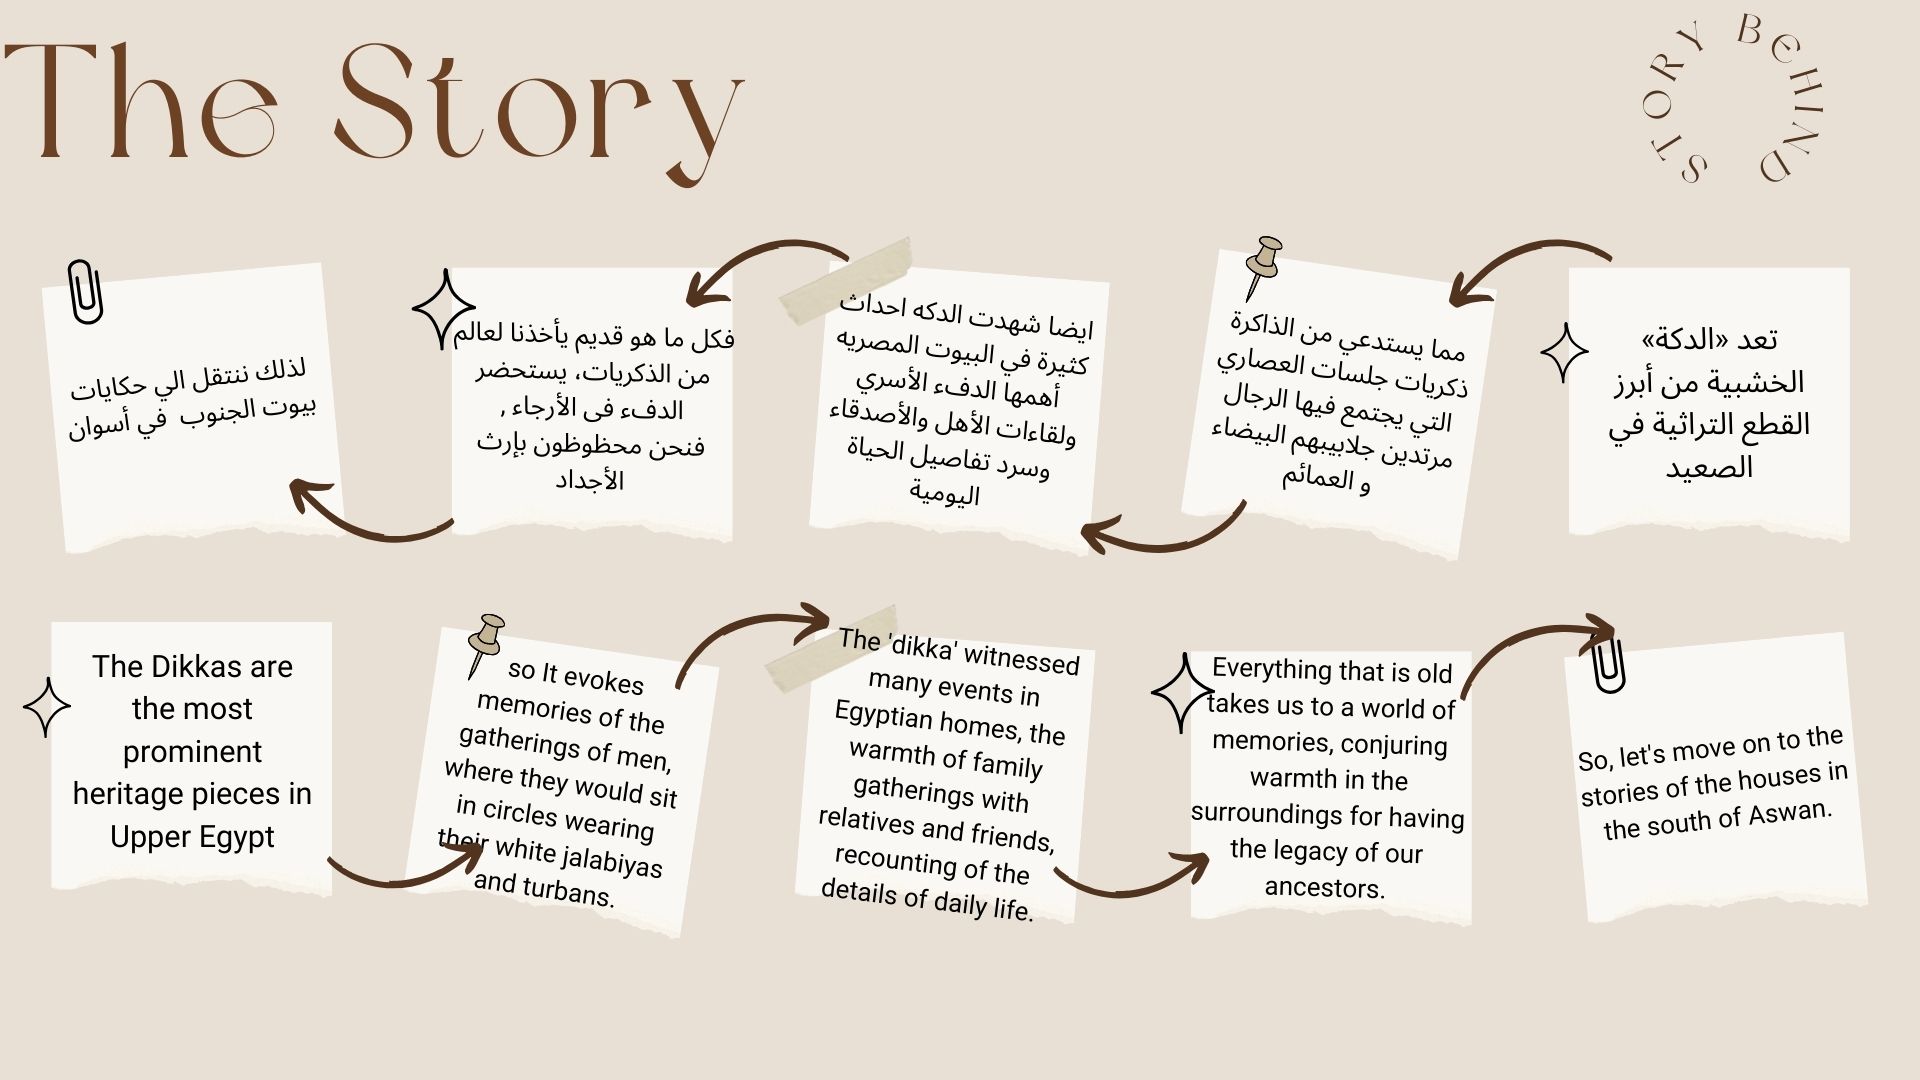 The Story
STORY BEHIND
تعد «الدكة»
الخشبية من أبرز
القطع التراثية في
الصعيد
مما يستدعي من الذاكرة
ذكريات جلسات العصاري
التي يجتمع فيها الرجال
مرتدين جلابيبهم البيضاء
و العمائم
ايضا شهدت الدكه احداث
كثيرة في البيوت المصريه
أهمها الدفء الأسري
ولقاءات الأهل والأصدقاء
وسرد تفاصيل الحياة
اليومية
فكل ما هو قديم يأخذنا لعالم
من الذكريات، يستحضر
الدفء فى الأرجاء ,
فنحن محظوظون بإرث
الأجداد
لذلك ننتقل الي حكايات
بيوت الجنوب في أسوان
The Dikkas are
the most
prominent
heritage pieces in
Upper Egypt
so It evokes
memories of the
gatherings of men,
where they would sit
in circles wearing
their white jalabiyas
and turbans.
The 'dikka' witnessed
many events in
Egyptian homes, the
warmth of family
gatherings with
relatives and friends,
recounting of the
details of daily life.
Everything that is old
takes us to a world of
memories, conjuring
warmth in the
surroundings for having
the legacy of our
ancestors.
So, let's move on to the
stories of the houses in
the south of Aswan.